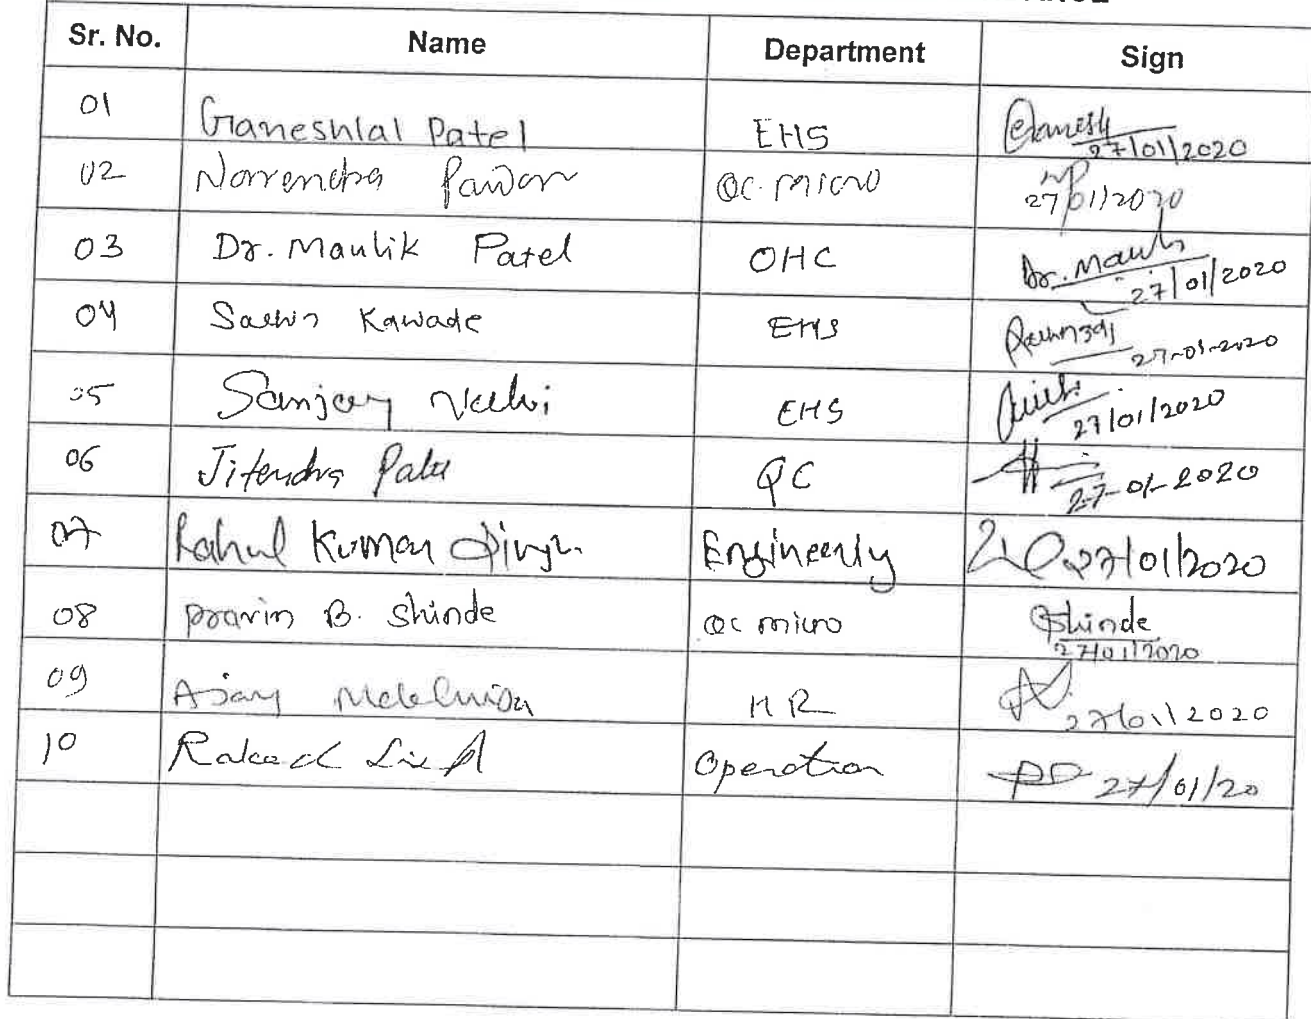 Sr. No. Name Department Sign
01 Ganeshlal Patel EHS Ganesh 27/01/2020
02 Narrendra Pawar QC micro NP 27/01/2020
03 Dr. Maulik Patel OHC Dr. Maulik 27/01/2020
04 Sachin Kawade EHS 27-01-2020
05 Sanjay Valvi EHS 27/01/2020
06 Jitendra QC 27-01-2020
07 Rahul Kumar Singh Engineering 27/01/2020
08 Pravin B. Shinde QC micro Shinde 27/01/2020
09 Ajay HR 27/01/2020
10 Operation 27/01/20